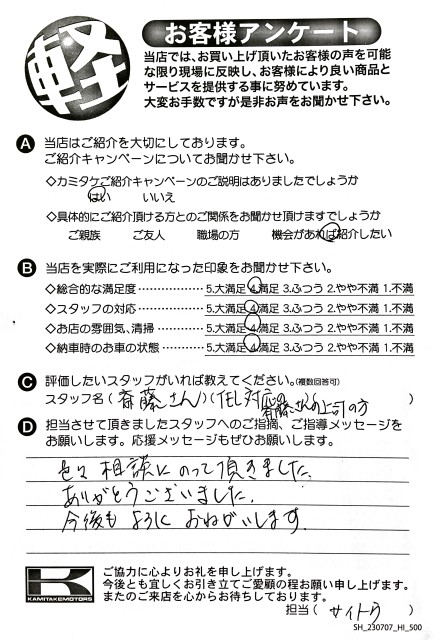 軽
お客様アンケート
当店では、お買い上げ頂いたお客様の声を可能
な限り現場に反映し、お客様により良い商品と
サービスを提供する事に努めています。
大変お手数ですが是非お声をお聞かせ下さい。
A 当店はご紹介を大切にしております。
ご紹介キャンペーンについてお聞かせ下さい。
◇カミタケご紹介キャンペーンのご説明はありましたでしょうか
はい いいえ
◇具体的にご紹介頂ける方とのご関係をお聞かせ頂けますでしょうか
ご親族 ご友人 職場の方 機会があれば紹介したい
B 当店を実際にご利用になった印象をお聞かせ下さい。
◇総合的な満足度 5.大満足 4.満足 3.ふつう 2.やや不満 1.不満
◇スタッフの対応 5.大満足 4.満足 3.ふつう 2.やや不満 1.不満
◇お店の雰囲気、清掃 5.大満足 4.満足 3.ふつう 2.やや不満 1.不満
◇納車時のお車の状態 5.大満足 4.満足 3.ふつう 2.やや不満 1.不満
C 評価したいスタッフがいれば教えてください。(複数回答可)
スタッフ名 ( 斎藤さん ) ( 対応の )
斎藤さんの上司の方
D 担当させて頂きましたスタッフへのご指摘、ご指導メッセージを
お願いします。応援メッセージもぜひお願いします。
色々相談にのって頂きました。
ありがとうございました。
今後もよろしくおねがいします。
K
KAMITAKEMOTORS
ご協力に心よりお礼を申し上げます。
今後とも宜しくお引き立てご愛顧の程お願い申し上げます。
またのご来店を心からお待ちしております。
担当 ( サイトウ )
SH_230707_HI_500